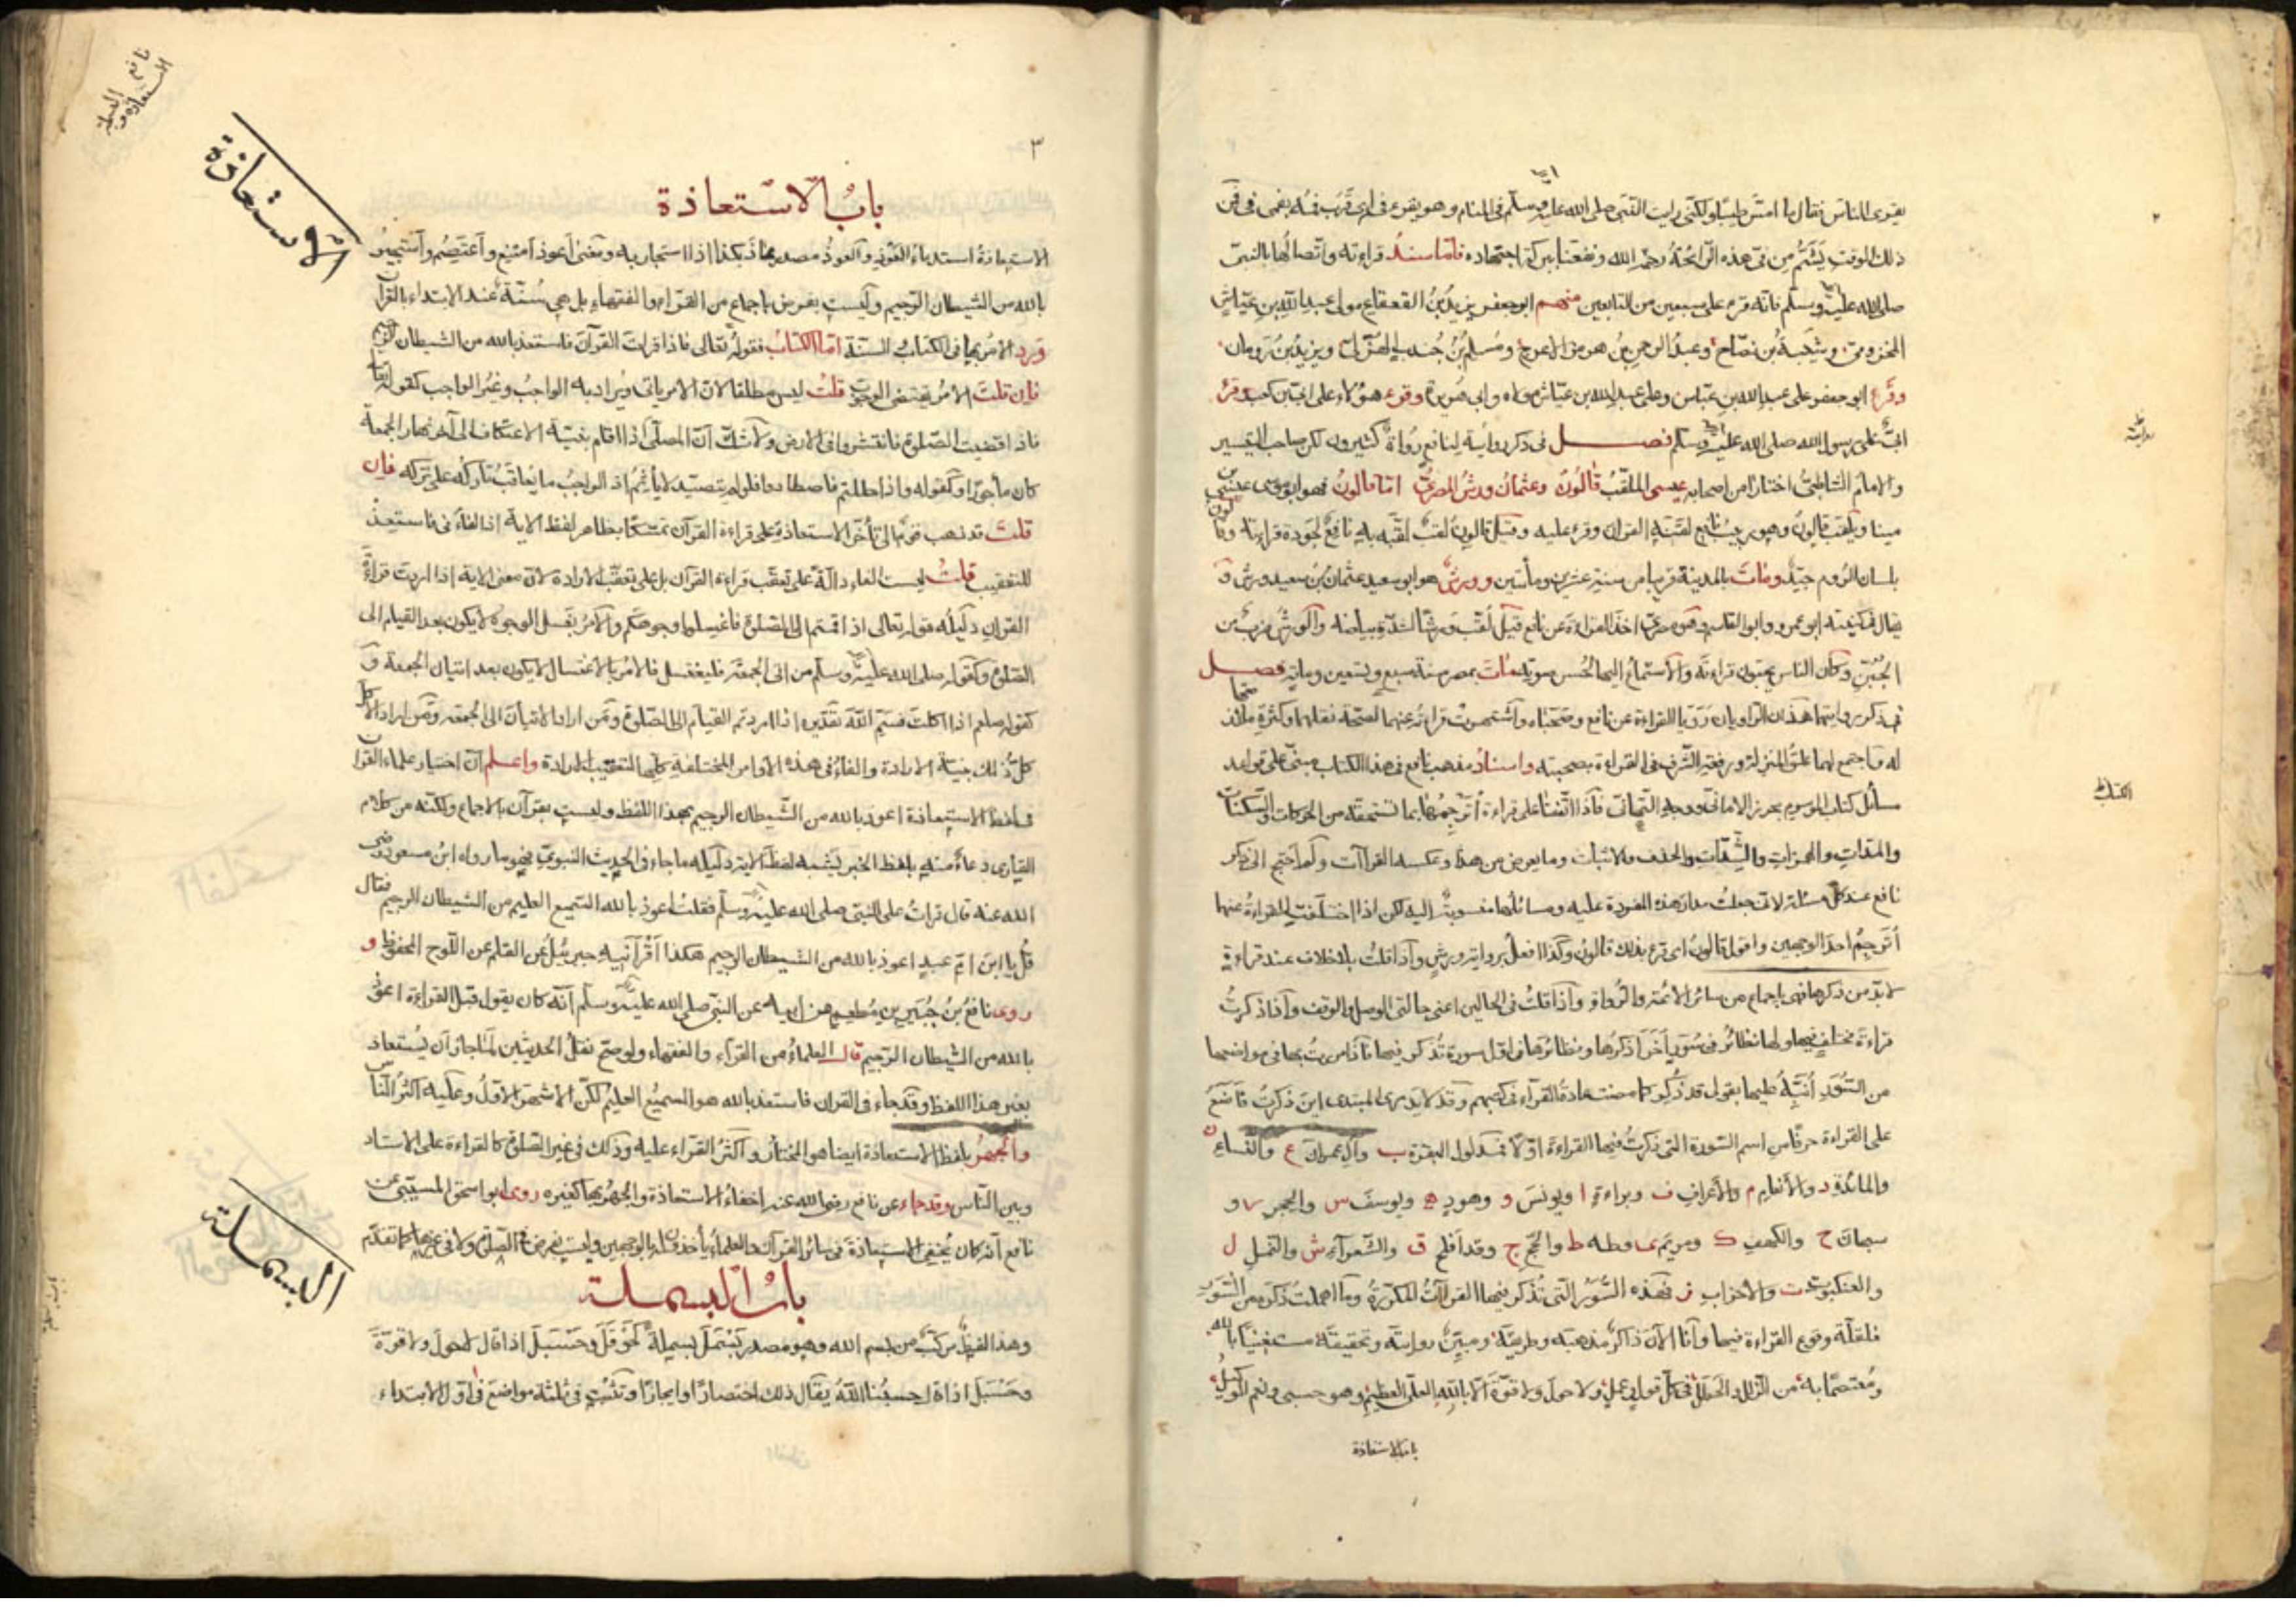 يقرئ الناس فقال ما امسّ طيبا ولكنّى رايت النبى صلى الله عليه وسلّم فى المنام وهو يقرء فى
ذلك الوقت يشمّ من فى هذه الرائحة رحمه الله ونفعنا ببركة اجتهاده فامّا سند قراءته واتصالها بالنبىّ
صلى الله عليه وسلّم فانه قرء على سبعين من التابعين منهم ابو جعفر يزيد بن القعقاع مولى عبد الله بن عيّاش
المخزومى وشيبة بن نصاح وعبد الرحمن بن هرمز الاعرج ومسلم بن جندب الهذلى ويزيد بن رومان
وقرء ابو جعفر على عبد الله بن عباس وعلى عبد الله بن عيّاش مولاه وابى هريرة وقرء هؤلاء على ابىّ بن كعب وقرء
ابىّ على رسول الله صلى الله عليه وسلّم فصل فى ذكر رواية لنافع رواة كثيرون لكن صاحب التيسير
والامام الشاطبىّ اختارا من اصحابه عيسى الملقّب قالون وعثمان ورش المصرىّ امّا قالون فهو ابو موسى عيسى بن
مينا ويلقب قالون وهو ربيب نافع لقّنه القرآن وقرء عليه وقيل قالون لقب لقّبه به نافع لجودة قراءته
بلسان الروم جيّد ومات بالمدينة قريبا من سنة عشرين ومأتين وورش هو ابو سعيد عثمان بن سعيد ورش
يقال فى كنيته ابو عمرو وابو القاسم اخذ القراءة عن نافع قيل لقّب ورشا لشدّة بياضه والورش ضرب من
الجبن وكان الناس يحبون قراءته والاستماع اليها لحسن صوته مات بمصر سنة سبع وتسعين ومايه فصل
هذان الراويان رويا القراءة عن نافع وصحباه واشتهرت قراءته عنهما لصحّة نقلهما وكثرة
له فاجتمع لهما علوّ المنزلة ورفعة الشرف فى القراءة بصحبته واسناد مذهب نافع فى هذا الكتاب مبنىّ على قواعد
مسائل كتاب الموسوم بحرز الامانى ووجه التهانى فاذا اتفقنا على قراءة أترجمها بما تستحقه من الحركات والسكنات
والمدات والهمزات والشدّات والحذف والاثبات وما يعرض من هذا وعكسه القراآت
نافع عند كلّ مسئلة لانى جعلت مدار هذه المفردة عليه ومسائلها منسوبة اليه لكن اذا اختلفت القراءة عنهما
أترجم احد الوجهين واقول قالون اى قرء بذلك قالون وكذا افعل برواية ورش واذا قلت بلا خلاف عند قراءة
لا بدّ من ذكرها فهى باجماع من سائر الائمة والرواة واذا قلت فى الحالين اعنى حالتى الوصل والوقف واذا ذكرت
قراءة مختلف فيها ولها نظائر فى سور أخر اذكرها ونظائرها فى اوّل سورة تذكر فيها فاذا مررت بها فى مواضعها
من السّور أنبّه عليها بقولى قد ذكر كما مضت عادة القرّاء فى كتبهم وقد لا يدرى المبتدى اين ذكرت فاضع
على القراءة حرفا من اسم السورة التى ذكرت فيها القراءة اوّلا البقرة ب وآل عمران ع والنساء ن
والمائدة د والانعام م والاعراف ف وبراءة ا ويونس و وهود ه ويوسف س والحجر ر و
سبحان ح والكهف ك ومريم وطه ط والحجّ ج وقد افلح ق والشعرآء ش والنمل ل
والعنكبوت ت والاحزاب ز فهذه السّور التى تذكر فيها القراآت المكرّرة وما اهملت ذكره من السّور
فلقلّة وقوع القراءة فيها وانا الآن ذاكر مذهبه وطريقه ومبيّن روايته وتحقيقه مستعينا بالله
ومعتصما به من الزلل والخطل فى كلّ قول وعمل ولا حول ولا قوّة الّا بالله العلىّ العظيم وهو حسبى ونعم الوكيل
باب الاستعاذة
روايته
الكتاب
٣
نافع
الاستعاذة و البسملة
الاستعاذة
باب الاستعاذة
الاستعاذة استدعاء العوذ والعوذ مصدر عاذ بكذا اذا استجار به ومعنى أعوذ أمتنع وأعتصم وأستجير
بالله من الشيطان الرّجيم وليست بفرض باجماع من القرّاء والفقهاء بل هى سُنّة عند الابتداء بالقرآن
وَرد الامر بها فى الكتاب والسنّة امّا الكتاب فقوله تعالى فاذا قرات القرآن فاستعذ بالله من الشيطان الرجيم
فان قلت الامر يقتضى الوجوب قلت ليس مطلقا لانّ الامر ياتى ويراد به الواجب وغير الواجب كقوله تعالى
فاذا قضيت الصّلوة فانتشروا فى الارض ولا شكّ انّ المصلّى اذا اقام بنيّة الاعتكاف الى آخر نهار الجمعة
كان مأجورًا وكقوله واذا حللتم فاصطادوا فلو لم يتصيّد لا يأثم اذ الواجب ما يعاقب تاركه على تركه فان
قلت قد ذهب قوم الى تأخّر الاستعاذة على قراءة القرآن تمسّكا بظاهر لفظ الاية اذ الفاء فى فاستعذ
للتعقيب قلت ليست الفاء دالّة على تعقّب قراءة القرآن بل على تعقّب الارادة لانّ معنى الاية اذا اردت قراءة
القرآن دليله قوله تعالى اذا قمتم الى الصلوة فاغسلوا وجوهكم والامر بغسل الوجوه لا يكون بعد القيام الى
الصّلوة وكقوله صلى الله عليه وسلّم من اتى الجمعة فليغتسل فالامر بالاغتسال لا يكون بعد اتيان الجمعة و
كقوله صلعم اذا اكلت فسمّ الله تقديره اذا اردتم القيام الى الصّلوة ومن اراد الاتيان الى الجمعة ومن اراد الاكل
كلّ ذلك بنيّة الارادة والفاء فى هذه الاوامر المختلفة كلّها لتعقيب الارادة واعلم انّ اختيار علماء القرآن
فى لفظ الاستعاذة اعوذ بالله من الشّيطان الرجيم بهذا اللفظ وليست بقرآن بالاجماع ولكنّه من كلام
القارى دعاء منه بلفظ الخبر يشبه لفظ الآية دليله ما جاء فى الحديث النبوىّ فهو ما رواه ابن مسعود رضى
الله عنه قال قرات على النبىّ صلى الله عليه وسلّم فقلت اعوذ بالله السّميع العليم من الشيطان الرجيم فقال
قل يا ابن امّ عبد اعوذ بالله من الشيطان الرجيم هكذا أقرأنيه جبرئيل عن القلم عن اللّوح المحفوظ و
روى نافع بن جبير بن مطعم عن ابيه عن النّبى صلى الله عليه وسلّم انّه كان يقول قبل القراءة اعوذ
بالله من الشيطان الرّجيم قال العلماء من القرّاء والفقهاء ولو صحّ نقل الحديثين لما جاز ان يستعاذ
بغير هذا اللفظ وقد جاء فى القرآن فاستعذ بالله هو السميع العليم لكنّ الاشهر الاوّل وعليه اكثر النّاس
والجهر بلفظ الاستعاذة ايضا هو المختار واكثر القرّاء عليه وذلك فى غير الصّلوة كالقراءة على الاستاد
وبين النّاس وقد جاء عن نافع رضى الله عنه اخفاء الاستعاذة والجهر بها كغيره روى ابو اسحق المسيّبى عن
نافع انّه كان يخفى الاستعاذة فى سائر القرآن والعلماء يأخذون له بالوجهين وليست بفرض فى الصّلوة ولا فى غيرها كما تقدّم
البسملة
باب البسملة
وهذا اللفظ مركّب من بسم الله وهو مصدر بسمل بسملة كحوقل وحسبل اذا قال لا حول ولا قوّة
وحسبل اذا قال حسبنا الله يقال ذلك اختصارًا وايجازًا وتكتب فى ثلثة مواضع فى اوّل الابتداء